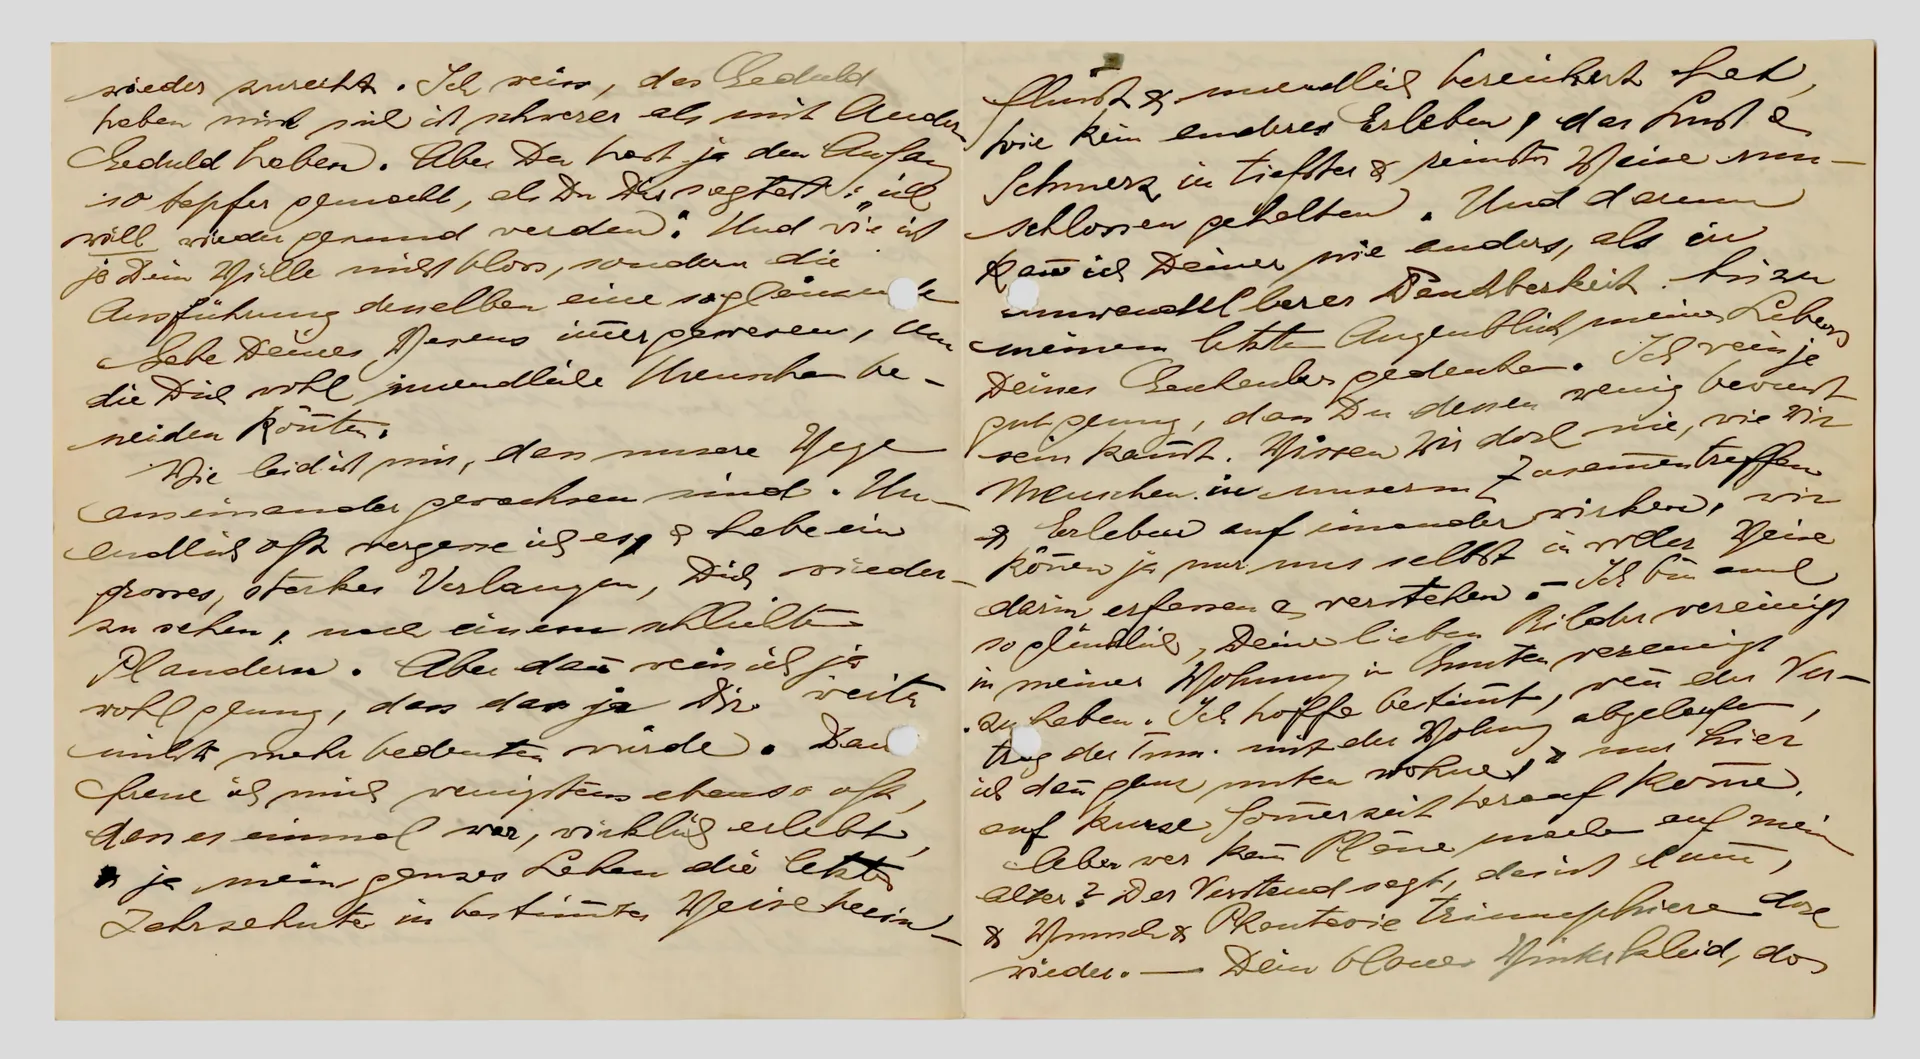 wieder zurecht. Ich weiss, das Geduld
haben mit sich ist schwerer als mit Andern
Geduld haben. Aber Du hast ja den Anfang
so tapfer gemacht, als Du Dir sagtest: "ich
will wieder gesund werden". Und wie ist
ja Dein Wille nicht bloss, sondern die
Ausführung desselben eine so glänzende
Gabe Deines Wesens im̄er gewesen, um
die Dich wohl unendliche Menschen be-
neiden kön̄ten.
Wie leid ist mir, dass unsere Wege
auseinander gewachsen sind. Un-
endlich oft vergesse ich es, & habe ein
grosses, starkes Verlangen, Dich wieder-
zu sehen, nach einem schlichten
Plaudern. Aber dan̄ weiss ich ja
wohl genug, dass das ja Dir weiter
nichts mehr bedeuten würde. Dan̄
freue ich mich wenigstens ebenso oft,
dass es einmal war, wirklich erlebt,
& ja mein ganzes Leben die letzten
Jahrzehnte in bestim̄ter Weise beein-
flusst & unendlich bereichert hat,
wie kein anderes Erleben, das Lust &
Schmerz in tiefster & reinster Weise um-
schlossen gehalten. Und darum
kan̄ ich Deiner nie anders, als in
unwandelbarer Dankbarkeit bis zu
meinem letzten Augenblick meines Lebens
Deines Gedenkens gedenken. Ich weiss ja
gut genug, dass Du dessen wenig bewusst
sein kan̄st. Wissen wir doch nie, wie wir
Menschen in unserem Zusam̄entreffen
& Erleben auf einander wirken, wir
kön̄en ja nur uns selbst in vieler Weise
darin erfassen & verstehen. – Ich bin auch
so glücklich, Deine lieben Bilder vereinigt
in meiner Wohnung in unten vereinigt
zu haben. Ich hoffe bestim̄t, wen̄ der Ver-
trag der mit der Wohnung abgelaufen,
ich dan̄ ganz unten wohne, & nur hier
auf kurze Som̄erzeit herauf kom̄e.
Aber wer kan̄ Pläne machen auf mein
alter? Der Verstand sagt, das ist dum̄,
& Wunsch & Phantasie triumphieren doch
wieder. — Dein blaues Winterkleid, das